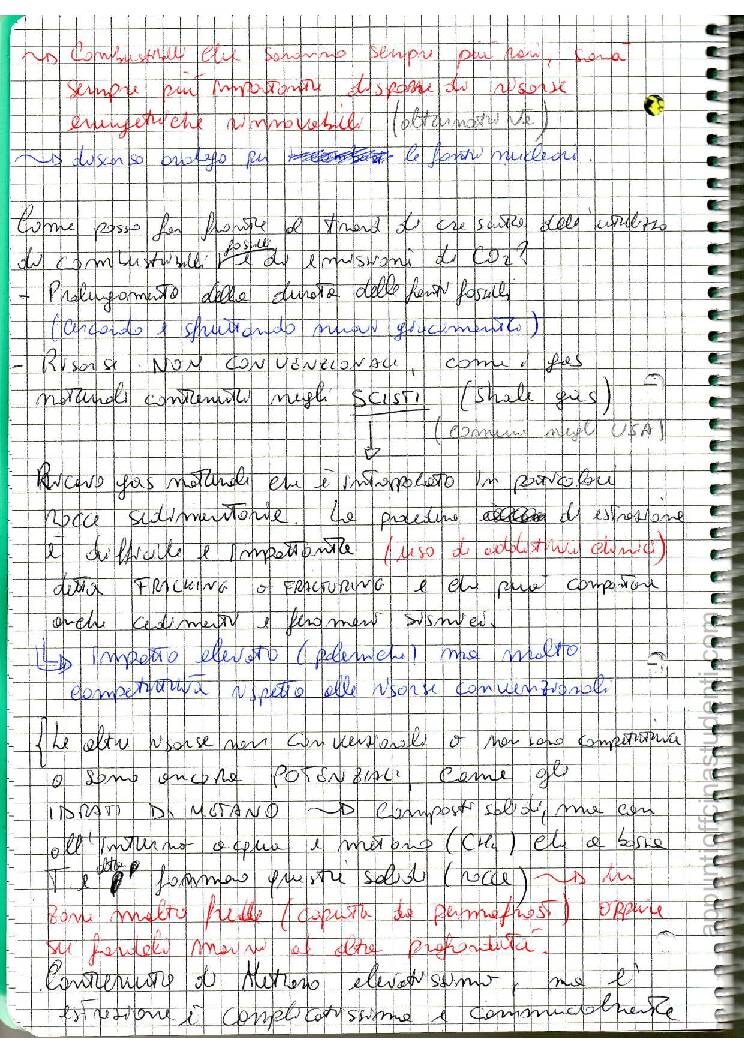 ~> Combustibili che saranno sempre più rari, sarà
sempre più importante disporre di risorse
energetiche rinnovabili (alternative)
~> discorso analogo per le fonti nucleari.
Come posso far fronte al trend di crescita dell'utilizzo
di combustibili fossili e di emissioni di CO2?
- Prolungamento della durata delle fonti fossili
(cercando e sfruttando nuovi giacimenti)
- Risorse NON CONVENZIONALI, come i gas
naturali contenuti negli SCISTI (shale gas)
(comuni negli USA)
Ricavo gas naturali che è intrappolato in particolari
rocce sedimentarie. La procedura di estrazione
è difficile e impattante (uso di additivi chimici)
detta FRACKING o FRACTURING e che può comportare
anche cedimenti e fenomeni sismici.
Impatto elevato (polemiche) ma molto
competitività rispetto alle risorse convenzionali
{Le altre risorse non convenzionali o non sono competitive
o sono ancora POTENZIALI, come gli
IDRATI DI METANO ~> Composti solidi, ma con
all'interno acqua e metano (CH4) che a bassa
T e alta P formano questi solidi (rocce) ~> In
zone molto fredde (coperte da permafrost) oppure
su fondali marini ad alta profondità.
Contenuto di Metano elevatissimo, ma l'
estrazione è complicatissima e commercialmente
appuntiofficinastudenti.com